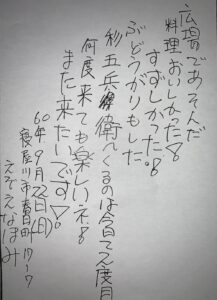 広場であそんだ
料理おいしかった!
すずしかった!
ぶどうがりもした
杉五兵衛へくるのは今日で2度目
何度来ても楽しいネ!
また来たいです!
60年9月22日(日)
寝屋川市